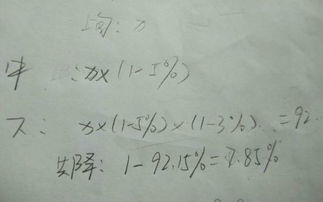 上旬: x
中 : x×(1-5%)
下: x×(1-5%)×(1-3%) =92.
共降: 1-92.15%=7.85%